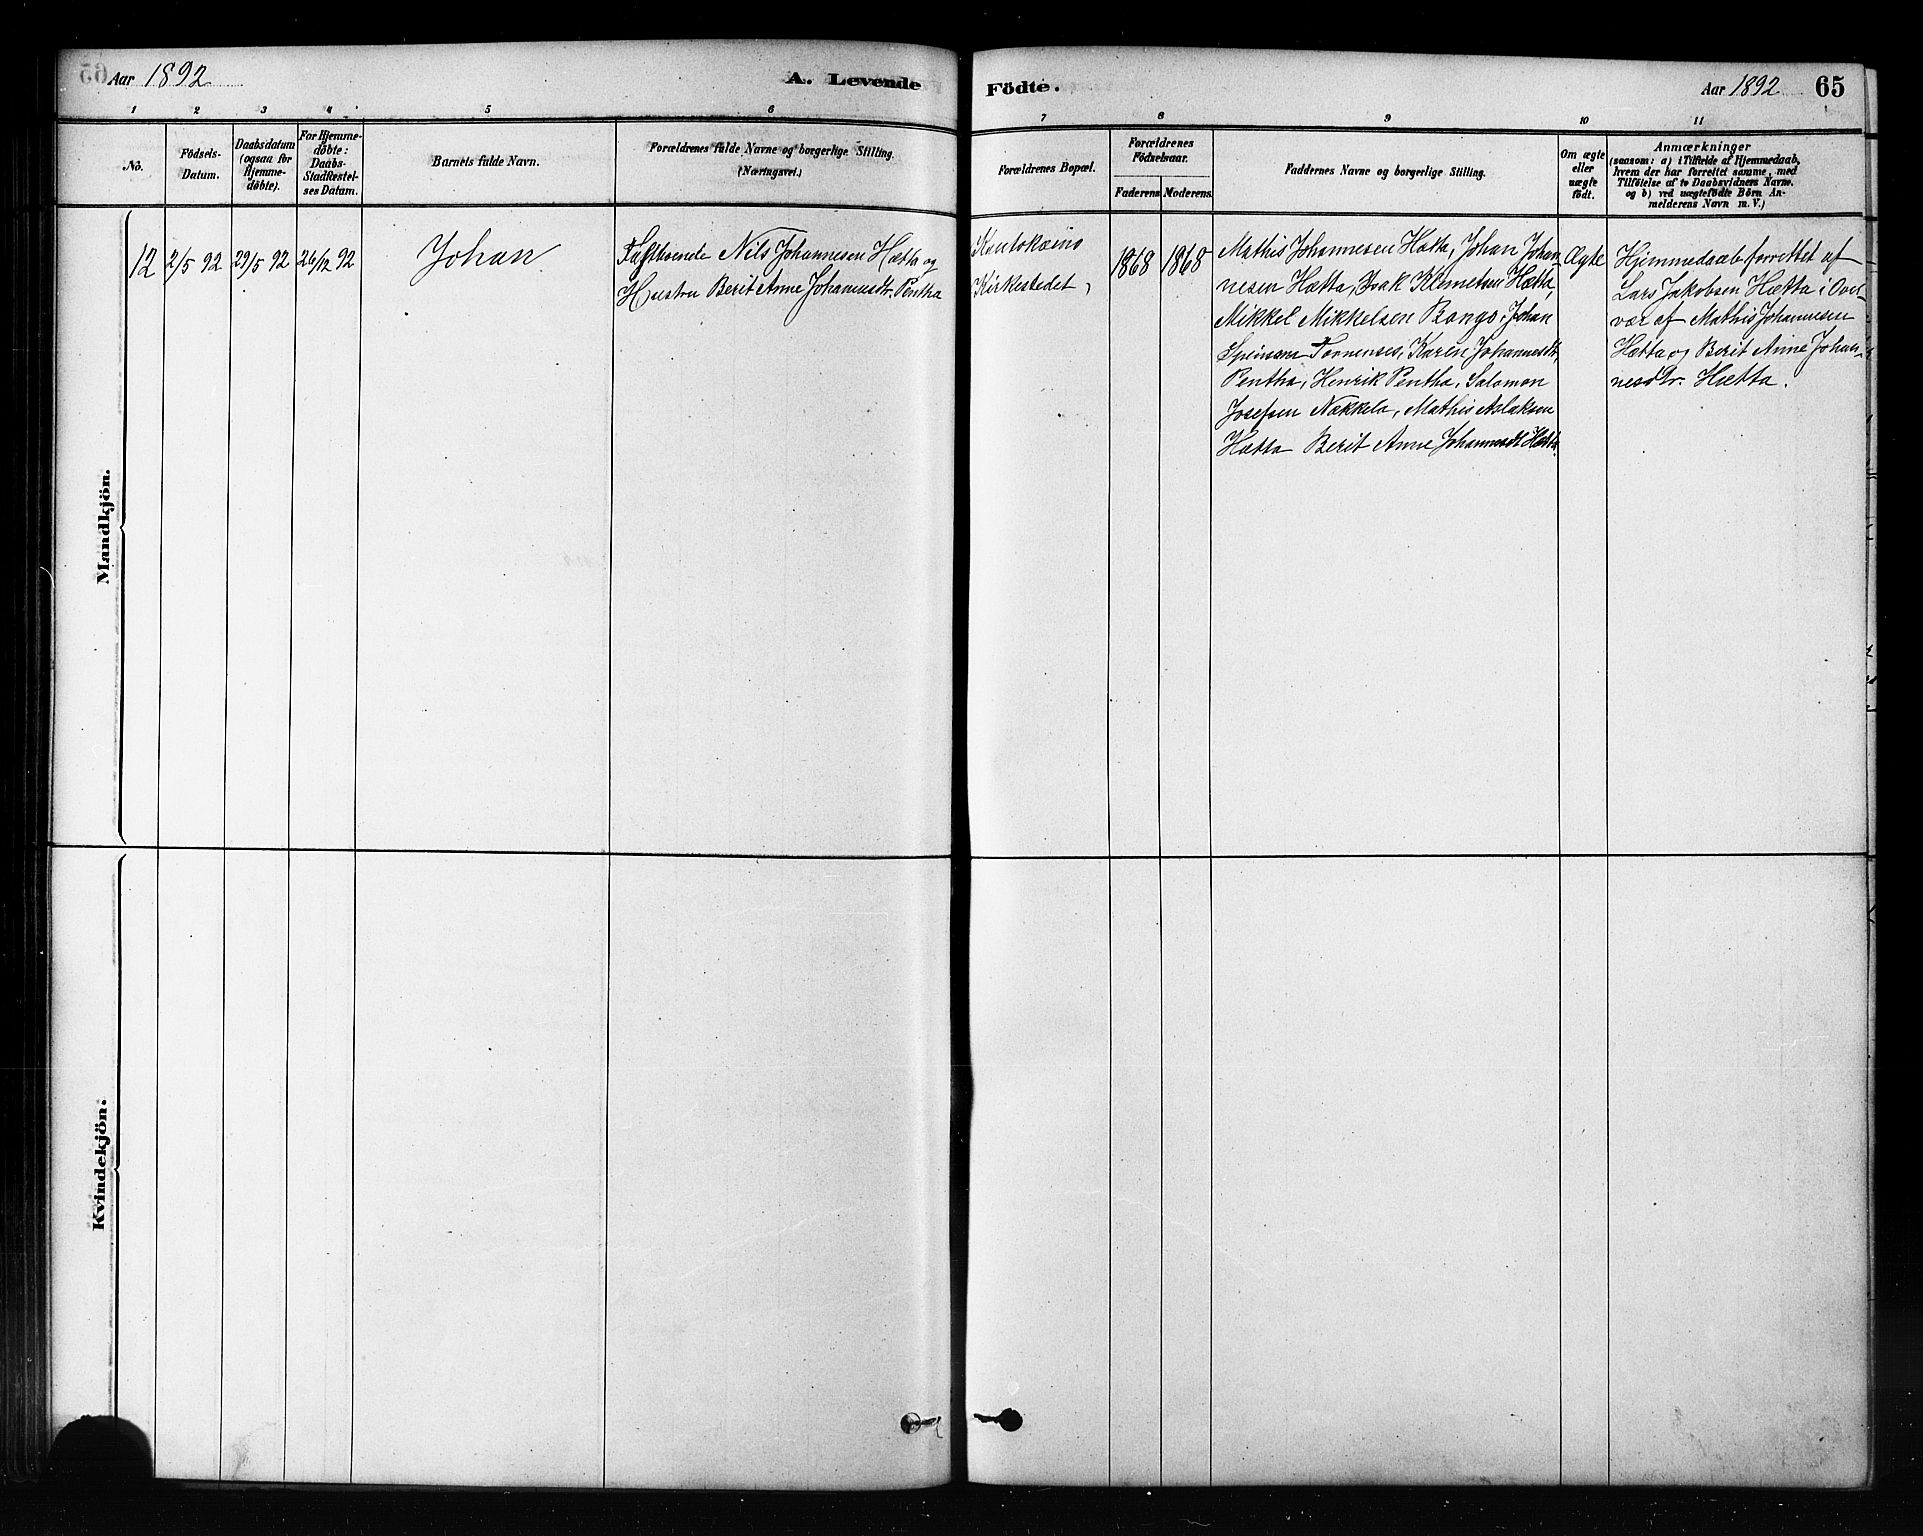 Aar 1892
A. Levende
Födte.
Aar 1892
65
1 2 3 4 5 6 7 8 9 10 11
No.
Födsels-
Datum.
Daabsdatum
(ogsaa for
Hjemme-
döbte).
For Hjemme-
döbte:
Daabs-
Stadfæstel-
ses Datum.
Barnets fulde Navn.
Forældrenes fulde Navne og borgerlige Stilling.
(Næringsvei.)
Forældrenes Bopæl.
Forældrenes
Födselsaar.
Faderens Moderens.
Faddernes Navne og borgerlige Stilling.
Om ægte
eller
uægte
födt.
Anmærkninger
(saasom: a) i Tilfælde af Hjemmedaab,
hvem der har forrettet samme, med
Tilföielse af to Daabsvidners Navne.
og b) ved uægtefödte Börn An-
melderens Navn m. V.)
Mandkjön.
12
2/5 92
29/5 92
26/12 92
Johan
Fastboende Nils Johannesen Hætta og
Hustru Berit Anne Johannesdtr. Pentha
Kautokeino
Kirkestedet,
1868
1868
Mathis Johannesen Hætta, Johan Johan-
nesen Hætta, Isak Klemetsen Hætta,
Mikkel Mikkelsen Bongo, Johan
Tornenses, Karen Johannesdtr.
Pentha, Henrik Pentha, Salomon
Josefsen Nækkela, Mathis Aslaksen
Hætta Berit Anne Johannesdt Hætta.
Ægte
Hjemmedaab forrettet af
Lars Jakobsen Hætta i Over-
vær af Mathis Johannesen
Hætta og Berit Anne Johan-
nesdtr. Hætta.
Kvindekjön.